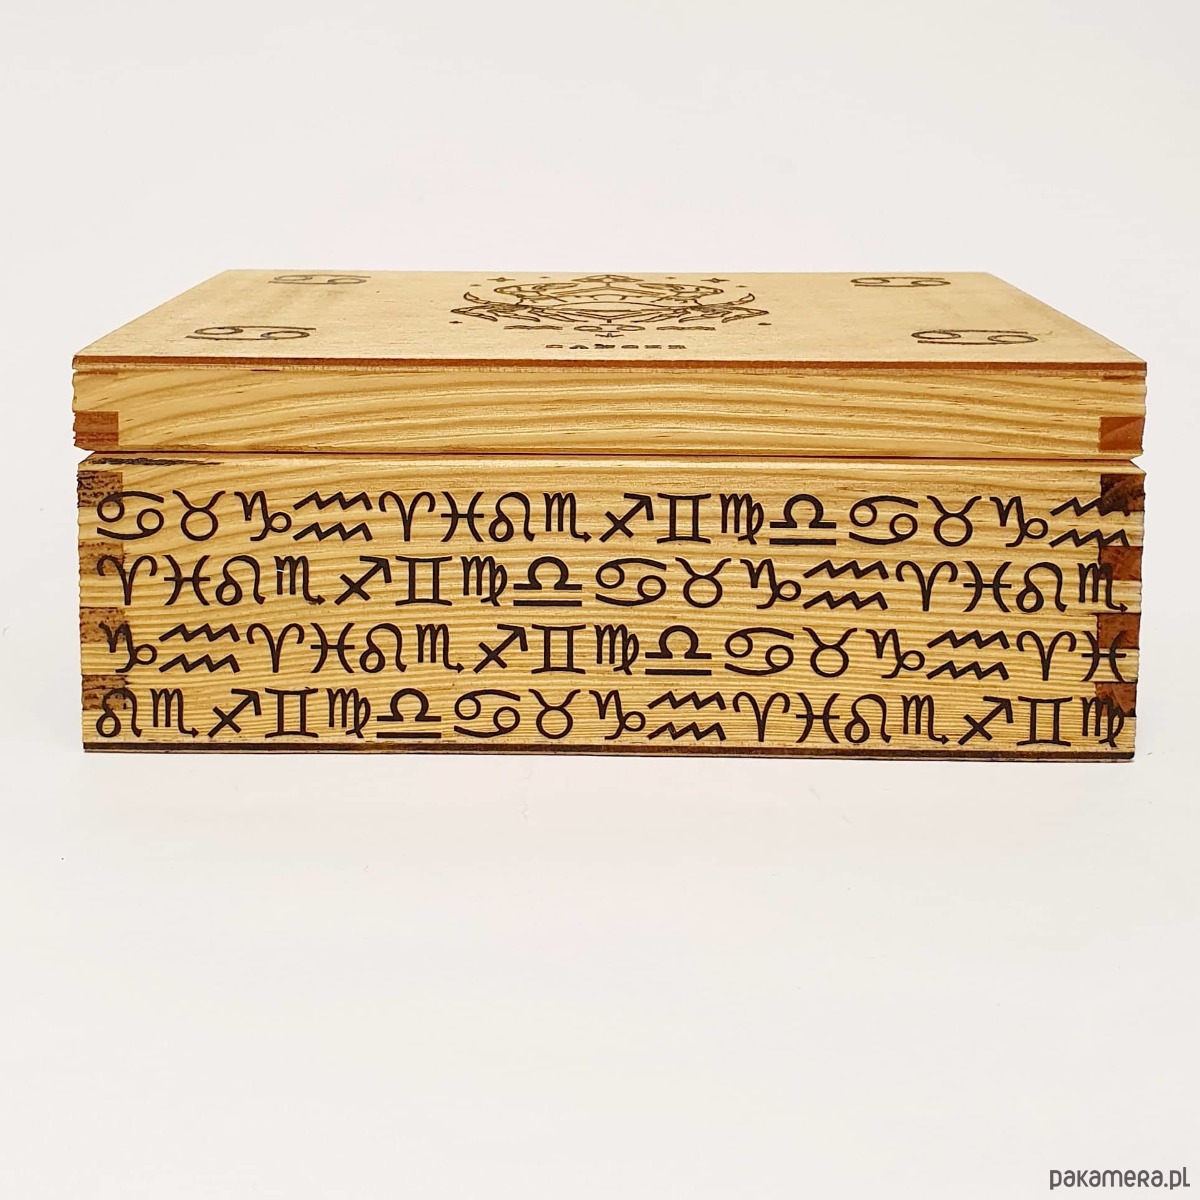 ♋ ♋
♋ ♋
CANCER
♋♉♑♒♈♓♌♏♐♊♍♎♋♉♑♒
♈♓♌♏♐♊♍♎♋♉♑♒♈♓♌♏
♑♒♈♓♌♏♐♊♍♎♋♉♑♒♈♓
♌♏♐♊♍♎♋♉♑♒♈♓♌♏♐♊♍
pakamera.pl